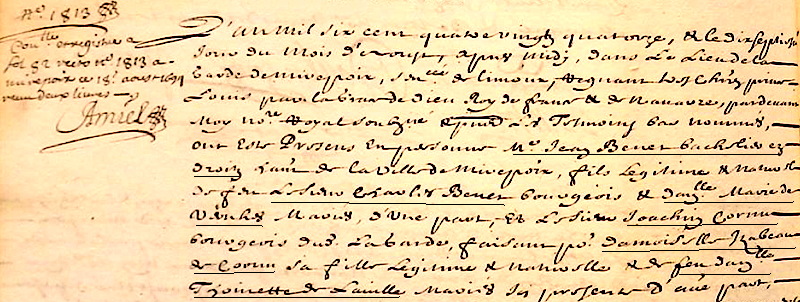 No. 1813
Con.lle enregistré a
fol 82 recto no. 1813 a
mirepoix ce 18e aoust 1694
reçu deux livres
Amiel
L'an mil six cent quatre vingtz quatorze, & le dixseptie jo
Jour du mois d'aoust, apres midy, dans Le Lieu de la
barde de mirepoix, sen.llee de limoux, regnant tres chrn prince
Louis par la Grace de dieu Roy de france & de Navarre, pardevant
Moy no.re Royal soubzné & pnts Les Tesmoins bas nommes,
ont Este Presens En personne Me. Jean Benet bachelier ez
droitz hant de la Ville de Mirepoix, fils Legitime & Naturel
de feu Le sieur Charles Benet bourgeois & dam.lle Marie de
Maries, d'Une part, Et Le sieur Joachin Cornu
bourgeois dud. Labarde, faisant po.r damoiselle Izabeau
de Cornu sa fille Legitime & Naturelle & de feu dam.lle
Thoinette de Laville Maries Icy presente d'aue part,